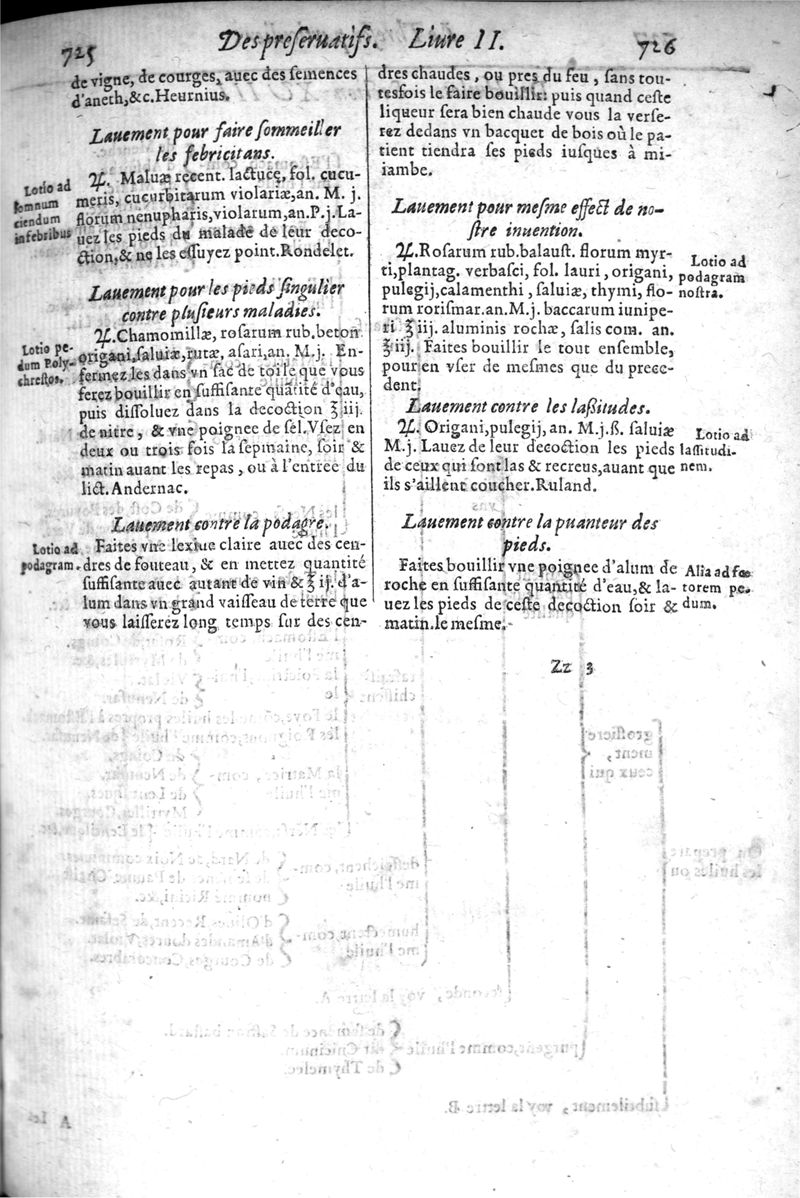 725 Des preſeruatifs. Liure II. 726
de vigne, de courges, auec des ſemences
d'aneth, &c. Heurnius.
Lauement pour faire ſommeiller
les febricitans.
Lotio ad
ſomnum
ciendum
in febribus
℞. Maluæ recent. lactucę, fol. cucu-
meris, cucurbitarum violariæ, an. M. j.
florum nenupharis, violarum, an. P. j. La-
uez les pieds du malade de leur deco-
ction, & ne les eſſuyez point. Rondelet.
Lauement pour les pieds ſingulier
contre pluſieurs maladies.
Lotio pe-
dum Poly-
chreſtos.
℞. Chamomillæ, roſarum rub. beton.
origani, ſaluiæ, rutæ, aſari, an. M. j. En-
fermez les dans vn ſac de toile que vous
ferez bouillir en ſuffiſante quãtité d'eau,
puis diſſoluez dans la decoction ℥ iij.
de nitre, & vne poignee de ſel. Vſez en
deux ou trois fois la ſepmaine, ſoir &
matin auant les repas, ou à l'entree du
lict. Andernac.
Lauement contre la podagre.
Lotio ad
podagram.
Faites vne lexiue claire auec des cen-
dres de fouteau, & en mettez quantité
ſuffiſante auec autant de vin & ℥ ij. d'a-
lum dans vn grand vaiſſeau de terre que
vous laiſſerez long temps ſur des cen-
dres chaudes, ou pres du feu, ſans tou-
tesfois le faire bouillir: puis quand ceſte
liqueur ſera bien chaude vous la verſe-
rez dedans vn bacquet de bois où le pa-
tient tiendra ſes pieds iuſques à mi-
iambe.
Lauement pour meſme effect de no-
ſtre inuention.
℞. Roſarum rub. balauſt. florum myr-
ti, plantag. verbaſci, fol. lauri, origani,
pulegij, calamenthi, ſaluiæ, thymi, flo-
rum roriſmar. an. M. j. baccarum iunipe-
ri ℥ iij. aluminis rochæ, ſalis com. an.
℥ iij. Faites bouillir le tout enſemble,
pour en vſer de meſmes que du prece-
dent.
Lotio ad
podagram
noſtra.
Lauement contre les laßitudes.
℞. Origani, pulegij, an. M. j. ß. ſaluiæ
M. j. Lauez de leur decoction les pieds
de ceux qui ſont las & recreus, auant que
ils s'aillent coucher. Ruland.
Lotio ad
laſſitudi-
nem.
Lauement contre la puanteur des
pieds.
Faites bouillir vne poignee d'alum de
roche en ſuffiſante quantité d'eau, & la-
uez les pieds de ceſte decoction ſoir &
matin. le meſme.
Alia ad fœ-
torem pe-
dum.
Zz 3